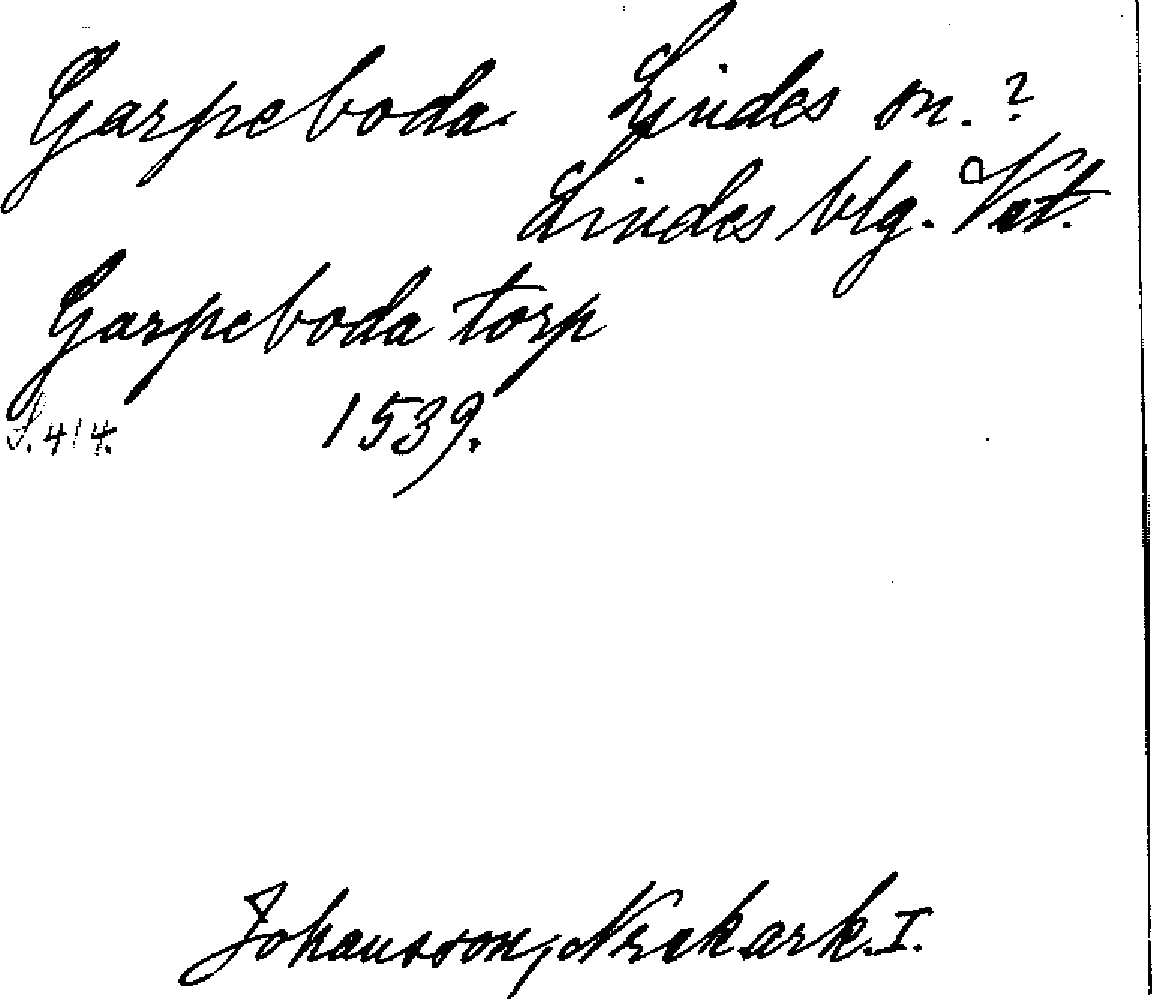 Garpeboda Lindes sn. ?
Lindes blg. Vst.
Garpeboda torp
S. 414. 1539.
Johansson, Nrekark. I.